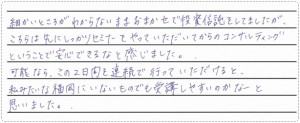 細かいところがわからないままおまかせで投資信託をしてましたが、
こちらは先にしっかりセミナーでやっていただいてからのコンサルティング
ということで安心できるなと感じました。
可能なら、この2日間を連続で行っていただけると、
私みたいな福岡にいないものでも受講しやすいのかなーと
思いました。